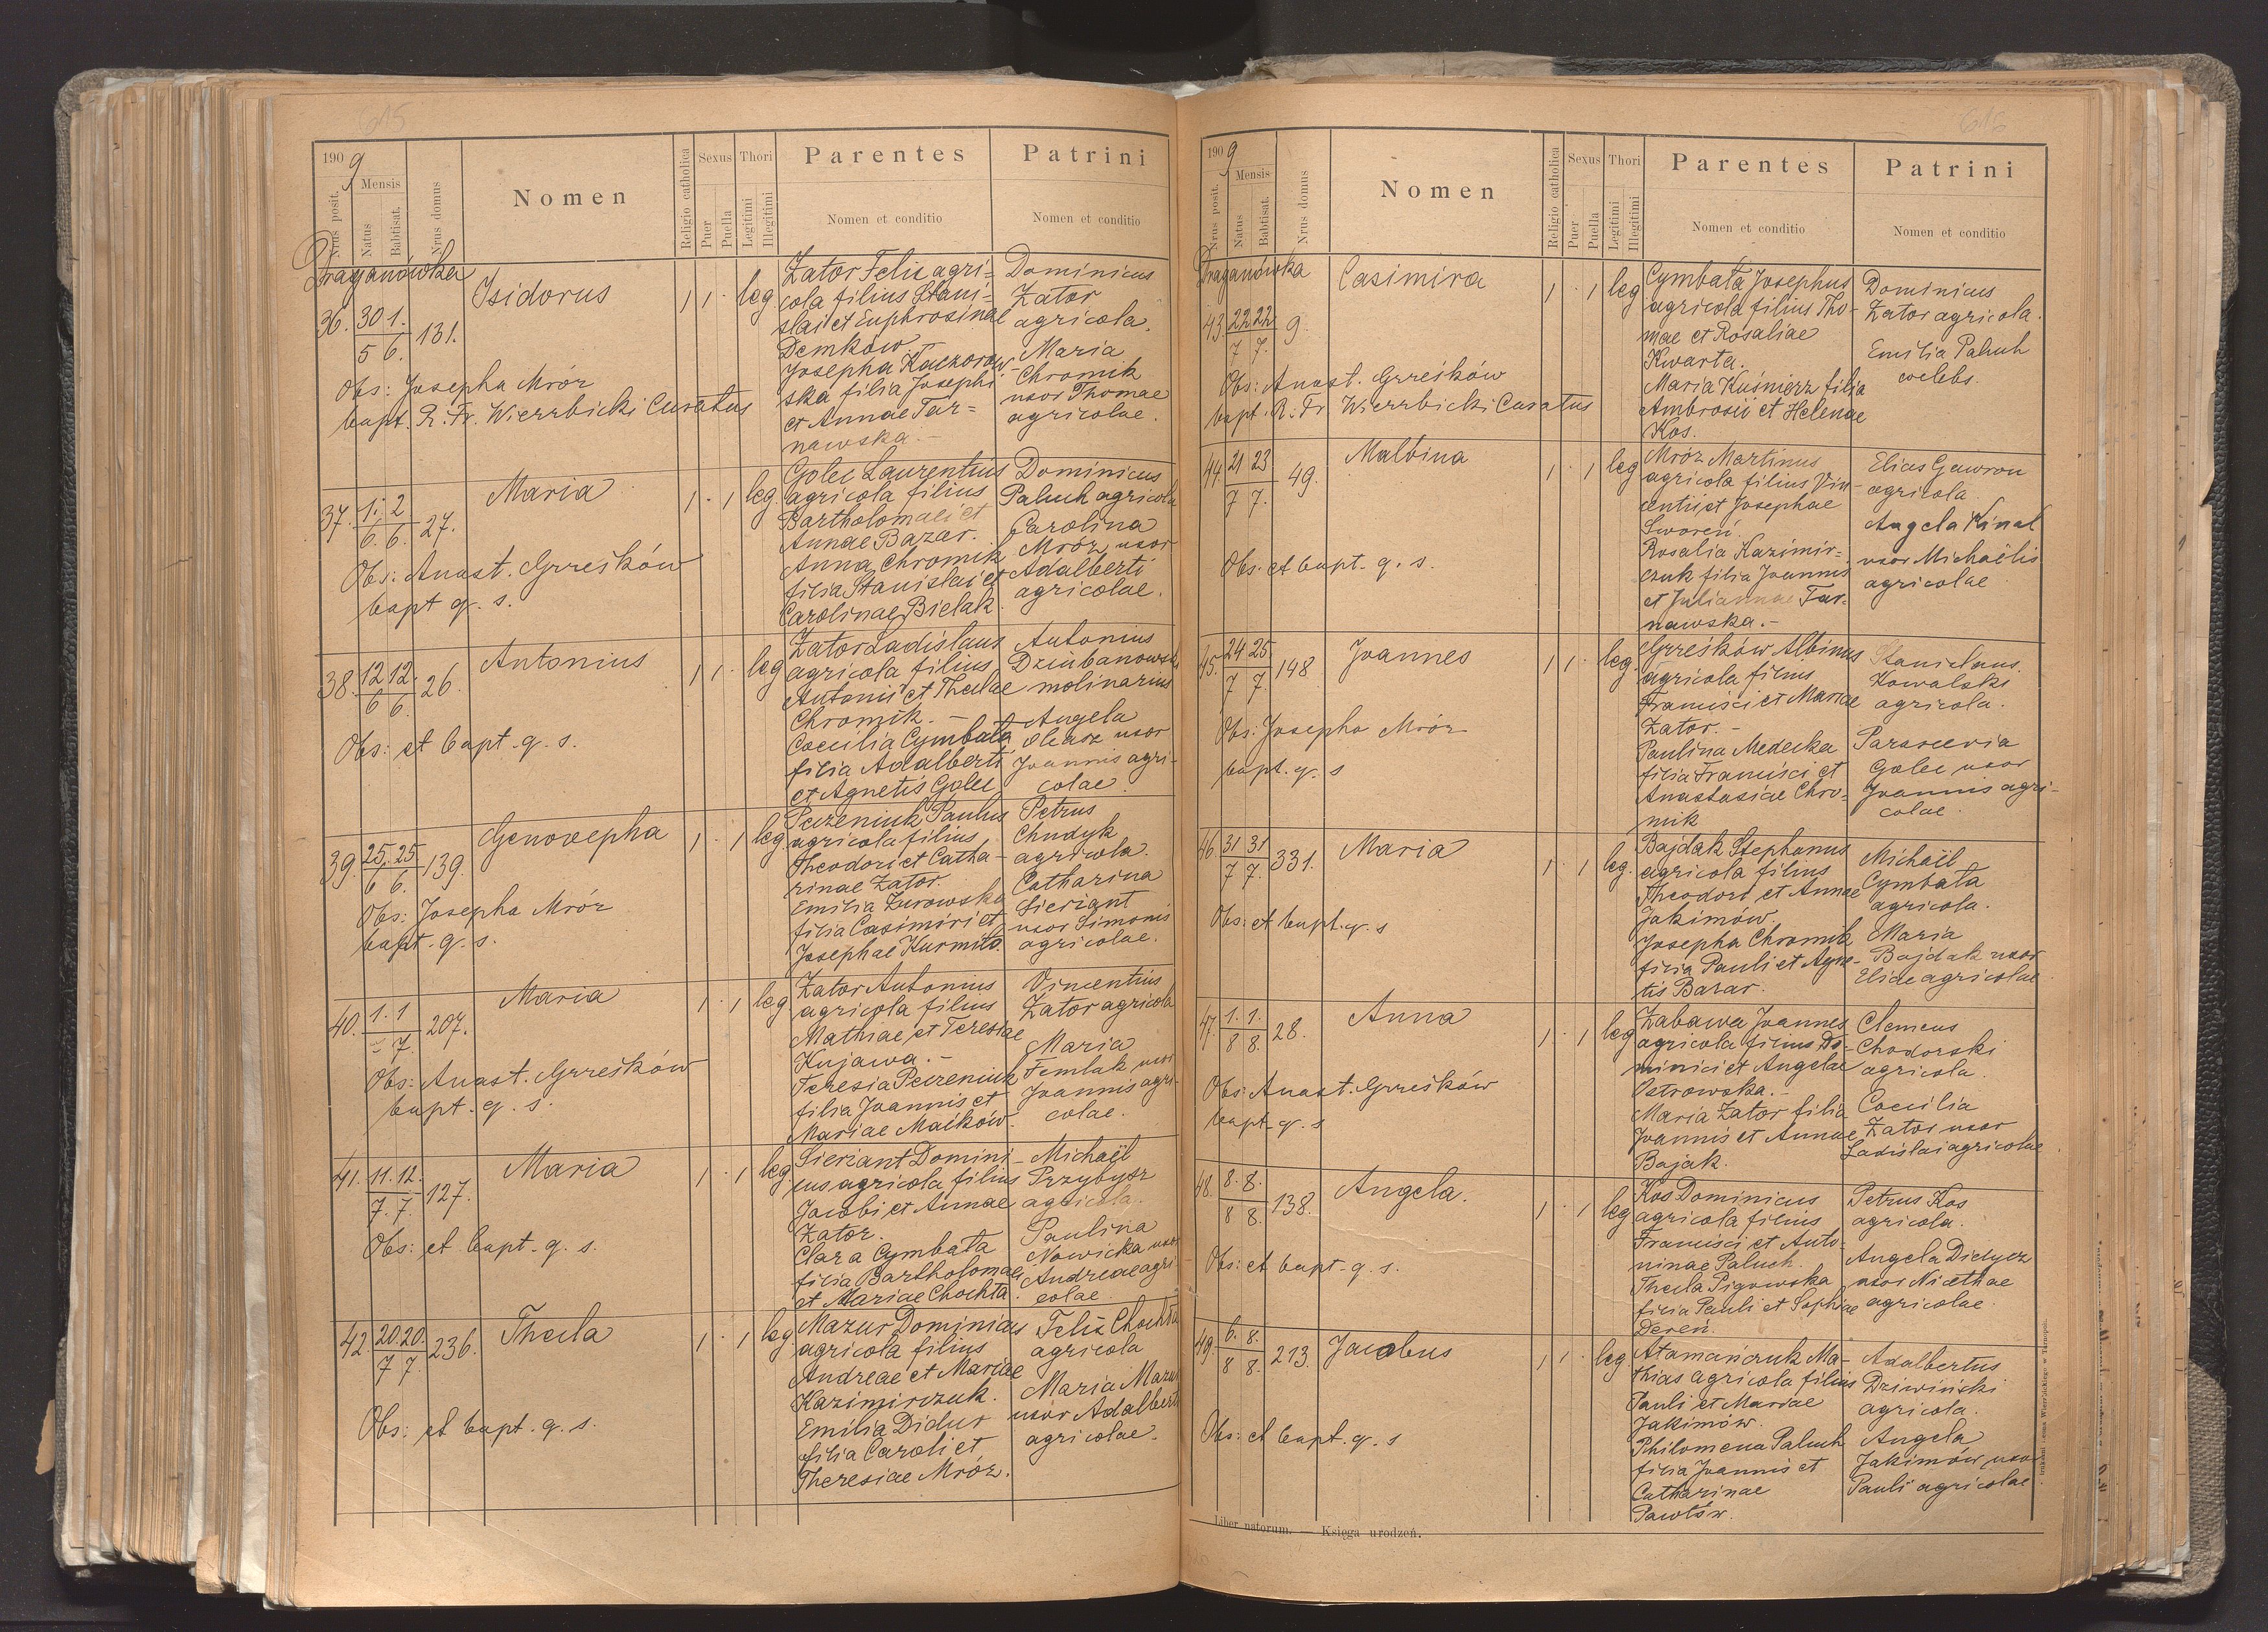 615
1909
Nrus posit.
Mensis
Natus
Babtisat.
Nrus domus
Nomen
Religio catholica
Sexus
Puer
Puella
Thori
Legitimi
Illegitimi
Parentes
Nomen et conditio
Patrini
Nomen et conditio
Draganówka
36. 30/5 1./6. 131. Isidorus 1 1 . leg
Zator Felix agri=
cola filius Stani=
slai et Euphrosinae
Demków. –
Josepha Kaczorow-
ska filia Josephi
et Annae Tar=
nawska. –
Dominicus
Zator
agricola.
Maria
Chromik
uxor Thomae
agricolae.
Obs: Josepha Mróz
bapt. R. Fr. Wierzbicki Curatus
37. 1./6. 2/6. 27. Maria 1 . 1 leg.
Golec Laurentius
agricola filius
Bartholomaei et
Annae Bazar.
Anna Chromik
filia Stanislai et
Carolinae Bielak.
Dominicus
Paluch agricola
Carolina
Mróz uxor
Adalberti
agricolae.
Obs: Anast. Grześków
bapt q. s.
38. 12/6 12./6. 26. Antonius 1 1 . leg
Zator Ladislaus
agricola filius
Antonii et Theclae
Chromik. –
Coecilia Cymbała
filia Adalberti
et Agnetis Golec
Antonius
Dziubanowski
molinarius
Angela
Olearz uxor
Joannis agri-
colae.
Obs: et bapt. q. s.
39. 25./6 25/6. 139. Genovepha 1 . 1 leg
Peczeniuk Paulus
agricola filius
Theodori et Catha-
rinae Zator.
Emilia Zurowska
filia Casimiri et
Josephae Kurmiło.
Petrus
Chudyk
agricola.
Catharina
Sierżant
uxor Simonis
agricolae.
Obs: Josepha Mróz
bapt. q. s.
40. 1. 1/7. 207. Maria 1 . 1 leg
Zator Antonius
agricola filius
Mathiae et Teresiae
Kujawa. –
Teresia Peczeniuk
filia Joannis et
Mariae Maików.
Vincentius
Zator agricola
Maria
Femlak uxor
Joannis agri-
colae.
Obs: Anast. Grześków
bapt. q. s.
41. 11./7. 12./7. 127. Maria 1 . 1 leg
Sierżant Domini-
cus agricola filius
Jacobi et Annae
Zator.
Clara Cymbała
filia Bartholomaei
et Mariae Chochła.
Michaël
Przybysz
agricola.
Paulina
Nowicka uxor
Andreae agri
colae.
Obs: et bapt. q. s.
42. 20./7 20./7. 236. Thecla 1 . 1 leg
Mazur Dominicus
agricola filius
Andreae et Mariae
Kazimirczuk.
Emilia Didur
filia Caroli et
Theresiae Mróz.
Felix Chochła
agricola
Maria Mazur
uxor Adalberti
agricolae.
Obs: et bapt. q. s.
616
1909
Nrus posit.
Mensis
Natus
Babtisat.
Nrus domus
Nomen
Religio catholica
Sexus
Puer
Puella
Thori
Legitimi
Illegitimi
Parentes
Nomen et conditio
Patrini
Nomen et conditio
Draganówka
43. 22/7 22/7. 9. Casimira 1 . 1 leg
Cymbała Josephus
agricola filius Tho-
mae et Rosaliae
Kwarta.
Maria Kuśnierz filia
Ambrosii et Helenae
Kos.
Dominicus
Zator agricola.
Emilia Paluch
coelebs.
Obs: Anast. Grześków
bapt. R. Fr Wierzbicki Curatus
44. 21/7 23/7. 49. Malvina 1 . 1 leg
Mróz Martinus
agricola filius Vin-
centii et Josephae
Sworeń.
Rosalia Kazimir=
czuk filia Joannis
et Juliannae Tar-
nawska. –
Elias Gawron
agricola.
Angela Kinal
uxor Michaëlis
agricolae
Obs: et bapt. q. s.
45. 24/7 25/7. 148 Joannes 1 1 . leg.
Grześków Albinus
agricola filius
Francisci et Mariae
Zator. –
Paulina Medecka
filia Francisci et
Anastasiae Chro=
mik
Stanislaus
Kowalski
agricola.
Parascevia
Golec uxor
Joannis agri-
colae.
Obs: Josepha Mróz
bapt. q. s
46. 31/7 31/7. 331. Maria 1 . 1 leg.
Bajdak Stephanus
agricola filius
Theodori et Annae
Jakimów.
Josepha Chromik
filia Pauli et Agne-
tis Bazar.
Michaël
Cymbała
agricola.
Maria
Bajdak uxor
Eliae agricolae
Obs: et bapt. q. s
47. 1./8 1./8. 28. Anna 1 . 1 leg
Zabawa Joannes
agricola filius Do-
minici et Angelae
Ostrowska. –
Maria Zator filia
Joannis et Annae
Bajak.
Clemens
Chodorski
agricola.
Coecilia
Zator uxor
Ladislai agricolae.
Obs: Anast. Grześków
bapt. q. s
48. 8./8 8./8. 138. Angela. 1 . 1 leg
Kos Dominicus
agricola filius
Francisci et Anto-
ninae Paluch.
Thecla Pigowska
filia Pauli et Sophiae
Dereń.
Petrus Kos
agricola.
Angela Didycz
uxor Nicethae
agricolae.
Obs: et bapt. q. s.
49. 6./8 8./8. 213. Jacobus 1 1 . leg
Atamańczuk Ma-
thias agricola filius
Pauli et Mariae
Jakimów.
Philomena Paluch
filia Joannis et
Catharinae
Pawłów.
Adalbertus
Dziwiński
agricola.
Angela
Jakimów uxor
Pauli agricolae
Obs: et bapt. q. s
Liber natorum. — Księga urodzeń.